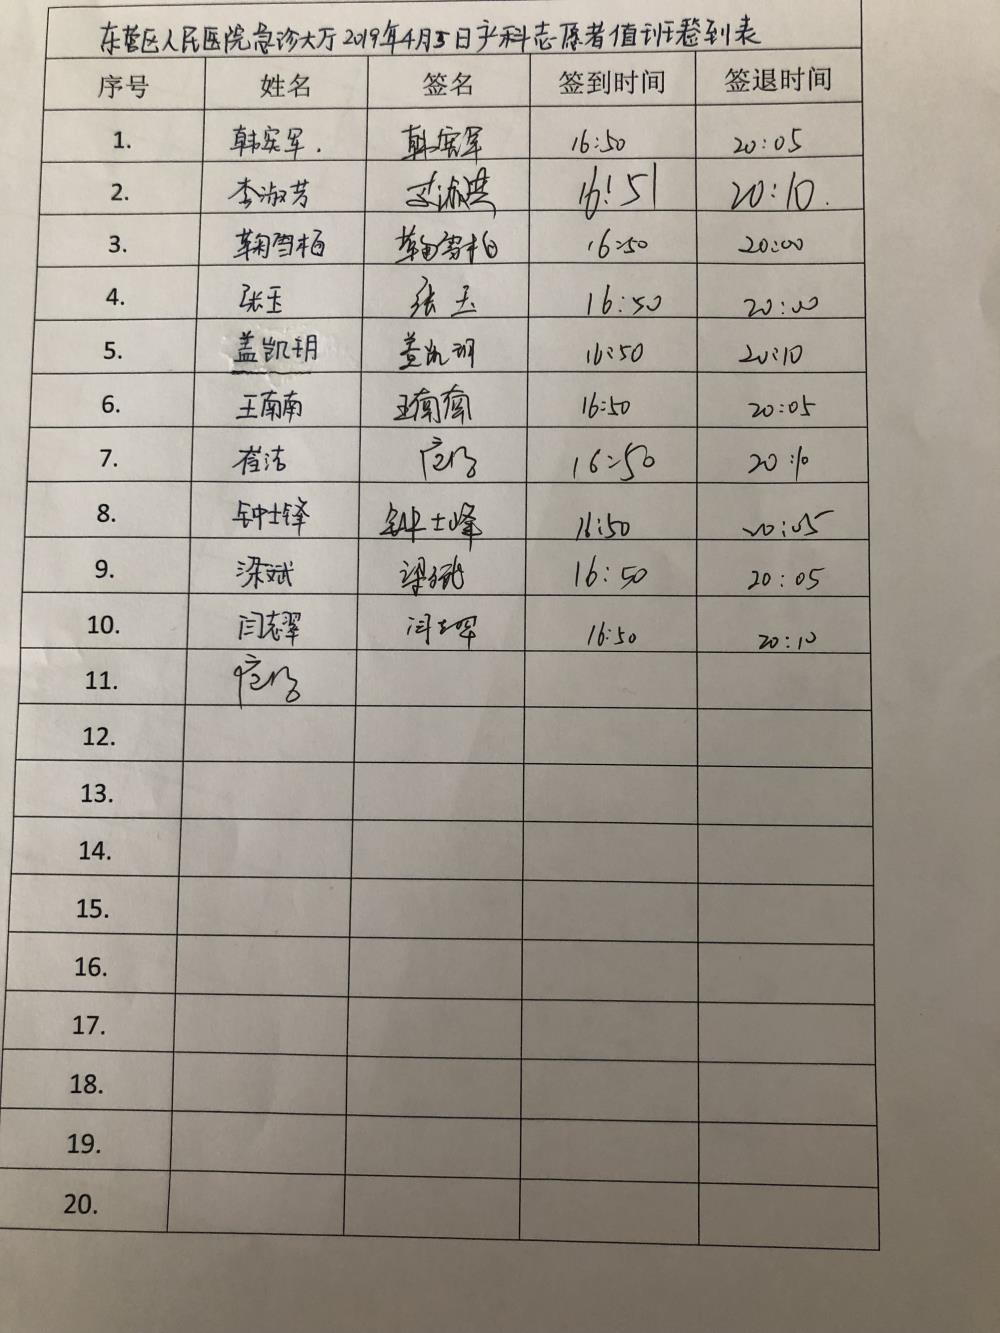 东营区人民医院急诊大厅2019年4月5日产科志愿者值班签到表
序号 姓名 签名 签到时间 签退时间
1. 韩宪军. 韩宪军 16:50 20:05
2. 李淑芳 16:51 20:10.
3. 鞠雪梅 16:50 20:00
4. 张玉 张玉 16:50 20:00
5. 盖凯玥 盖凯玥 16:50 20:10
6. 王南南 王南南 16:50 20:05
7. 崔洁 16:50 20:10
8. 钟士锋 钟士峰 16:50 20:05
9. 梁斌 梁斌 16:50 20:05
10. 闫志翠 16:50 20:10
11.
12.
13.
14.
15.
16.
17.
18.
19.
20.